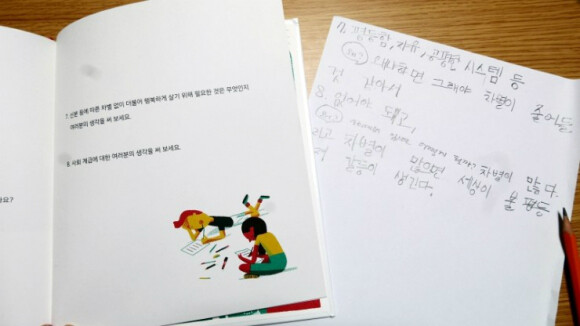 7. 신분 등에 따른 차별 없이 더불어 행복하게 살기 위해 필요한 것은 무엇인지
여러분의 생각을 써 보세요.
8. 사회 계급에 대한 여러분의 생각을 써 보세요.
7. 평등함, 자유, 공평한 시스템 등
왜냐하면 그래야 차별이 줄어들
것 같아서
8. 없어야 도
차별이 많다.
리고 차별이 많으면 세상이 불평등
갈등이 생긴다.